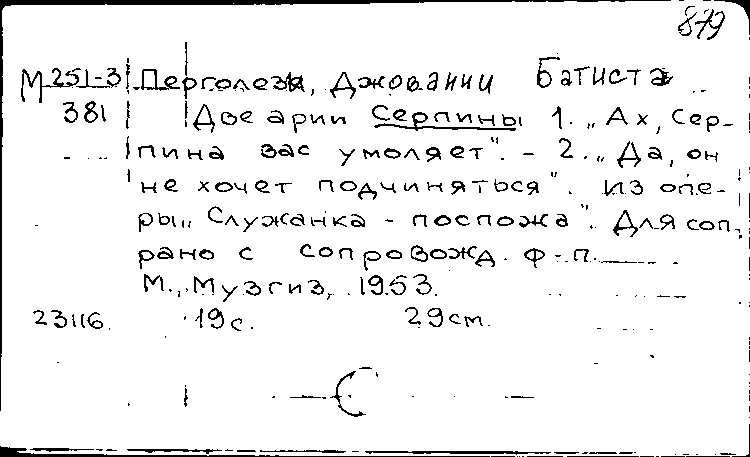 879
М 251-3 Перголези, Джованни Батиста
381 Две арии Серпины 1. „Ах, Сер-
пина вас умоляет". - 2. „Да, он
не хочет подчиняться". Из опе-
ры „Служанка - госпожа". Для соп-
рано с сопровожд. ф-п.
М., Музгиз, 1953.
23116. 19 с. 29 см.